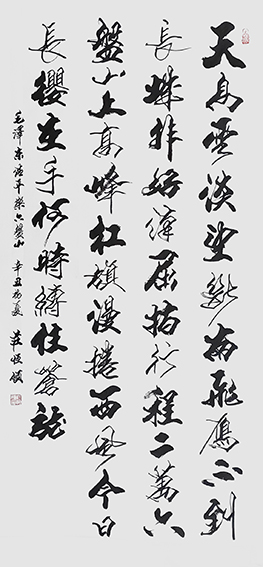 天高雲淡望斷南飛鴈不到
長城非好漢屈指行程二萬六
盤山上高峰紅旗漫捲西風今日
長纓在手何時縛住蒼龍
毛澤東清平樂六盤山 辛丑初夏 莊